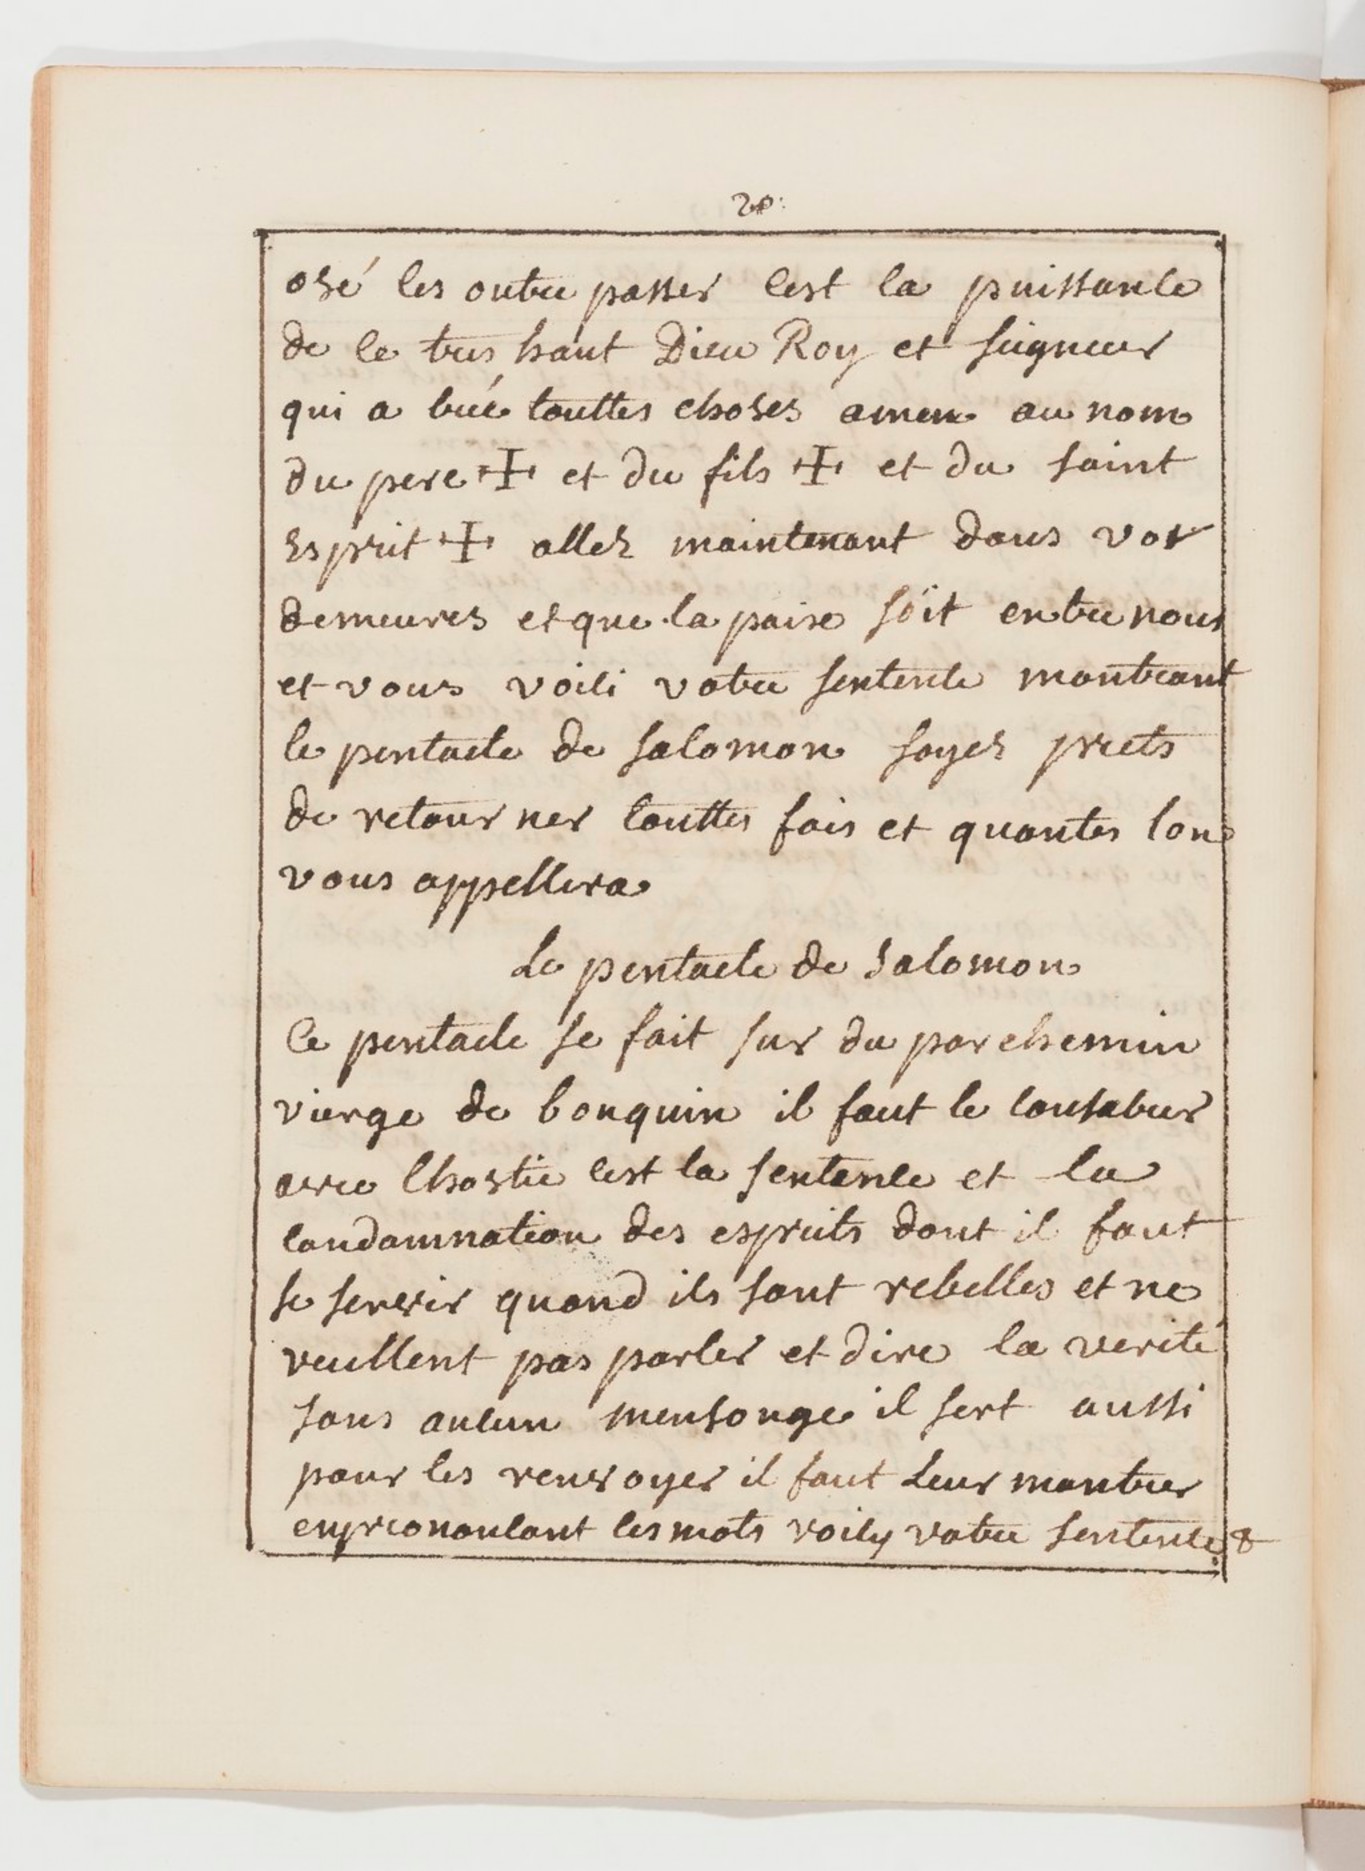 20
osé les outre passer cest la puissance
de ce tres haut Dieu Roy et seigneur
qui a créé touttes choses amen au nom
du pere ✠ et du fils ✠ et du saint
Esprit ✠ allez maintenant dans vos
demeures et que la paix soit entre nous
et vous voici votre sentence montrant
le pentacle de salomon soyez prets
de retourner touttes fois et quantes lon
vous appellera
Le pentacle de salomon
Ce pentacle se fait sur du parchemin
vierge de bouquin il faut le consacrer
avec lhostie cest la sentence et la
condamnation des esprits dont il faut
se servir quand ils sont rebelles et ne
veullent pas parler et dire la verité
sans aucun mensonge il sert aussi
pour les renvoyer il faut leur montrer
en prononcant les mots voicy votre sentence &